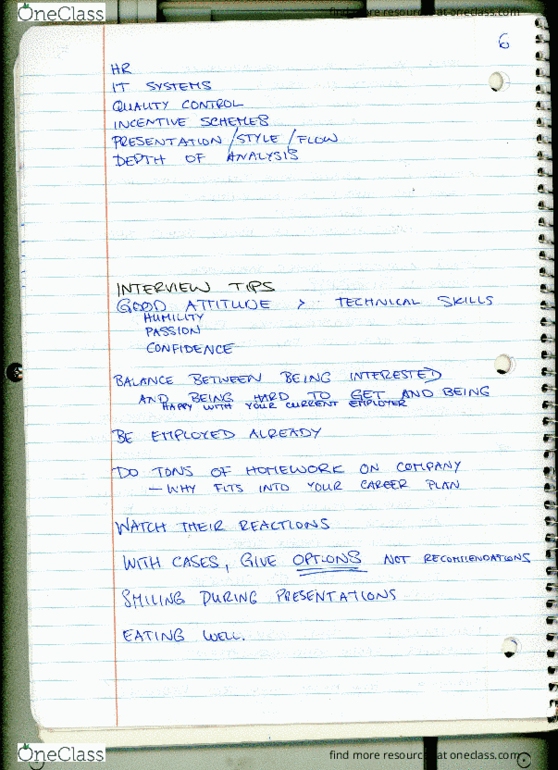 OneClass
find more resources at oneclass.com
6
HR
IT SYSTEMS
QUALITY CONTROL
INCENTIVE SCHEMES
PRESENTATION / STYLE / FLOW
DEPTH OF ANALYSIS
INTERVIEW TIPS
GOOD ATTITUDE > TECHNICAL SKILLS
HUMILITY
PASSION
CONFIDENCE
BALANCE BETWEEN BEING INTERESTED
AND BEING HARD TO GET AND BEING
HAPPY WITH YOUR CURRENT EMPLOYER
BE EMPLOYED ALREADY
DO TONS OF HOMEWORK ON COMPANY
– WHY FITS INTO YOUR CAREER PLAN
WATCH THEIR REACTIONS
WITH CASES, GIVE OPTIONS NOT RECOMMENDATIONS
SMILING DURING PRESENTATIONS
EATING WELL.
OneClass
find more resources at oneclass.com